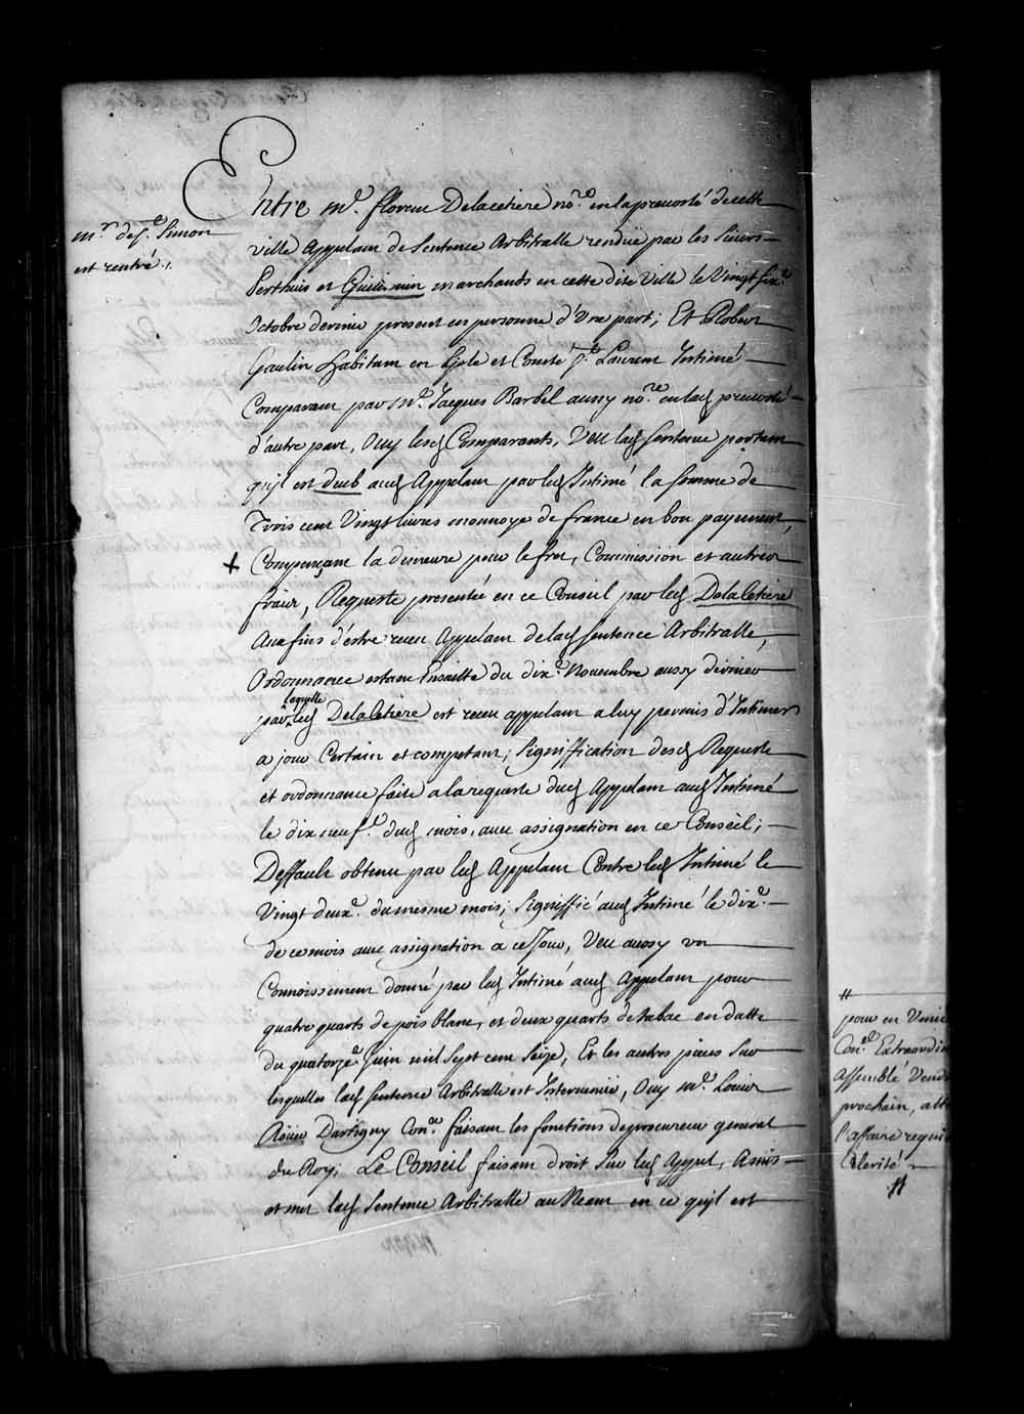 Mr. de St. Simon
est rentré./.
Entre Me. florent Delacetiere nore. en la prevosté de cette
ville Appelant de Sentence Arbitralle rendüe par les Sieurs
Perthuis et Guillimin marchands en cette dite Ville le Vingt six.e
Octobre dernier present en personne d'Une part; Et Robert
Gaulin habitant en Lisle et Comté St. Laurent Intimé
Comparant par Me. Jacques Barbel aussy nore. en lad prevosté
d'autre part, Ouy lesd Comparants, Veu lad Sentence portant
qu'il est deub aud Appelant par led Intimé la somme de
Trois cent Vingt livres monnoye de france en bon payement,
+ Compençant la demeure pour le fret, Commission et autres
fraix, Requeste presentée en ce Conseil par led Delacetiere
Aux fins d'estre receu Appelant de lad Sentence Arbitralle,
Ordonnance estant Ensuitte du dix.e Novembre aussy dernier
par laquelle led Delacetiere est receu appelant a luy permis d'Intimer
a jour Certain et competant; Signiffication desd Requeste
et ordonnance faite a la requeste dud Appelant aud Intimé
le dix neuf.e dud mois, avec assignation en ce Conseil;
Deffault obtenu par led Appelant Contre led Intimé le
Vingt deux.e du mesme mois; Signiffié aud Intimé le dix.e
de ce mois avec assignation a ce Jour, Veu aussy un
Connoissement donné par led Intimé aud Appelant pour
quatre quarts de pois blanc, et deux quarts de tabac en datte
du quatorze.e Juin mil Sept cent Seize, Et les autres pieces Sur
lesquelles lad Sentence Arbitralle est Intervenüe, Ouy Me. Louis
Roüer Dartigny Conr. faisant les fonctions de procureur general
du Roy; Le Conseil faisant droit Sur led Appel, A mis
et met lad Sentence Arbitralle au Neant en ce qu'jl est
#
pour en
Con.el
assemblé
prochain,
l'affaire
Celerité
#